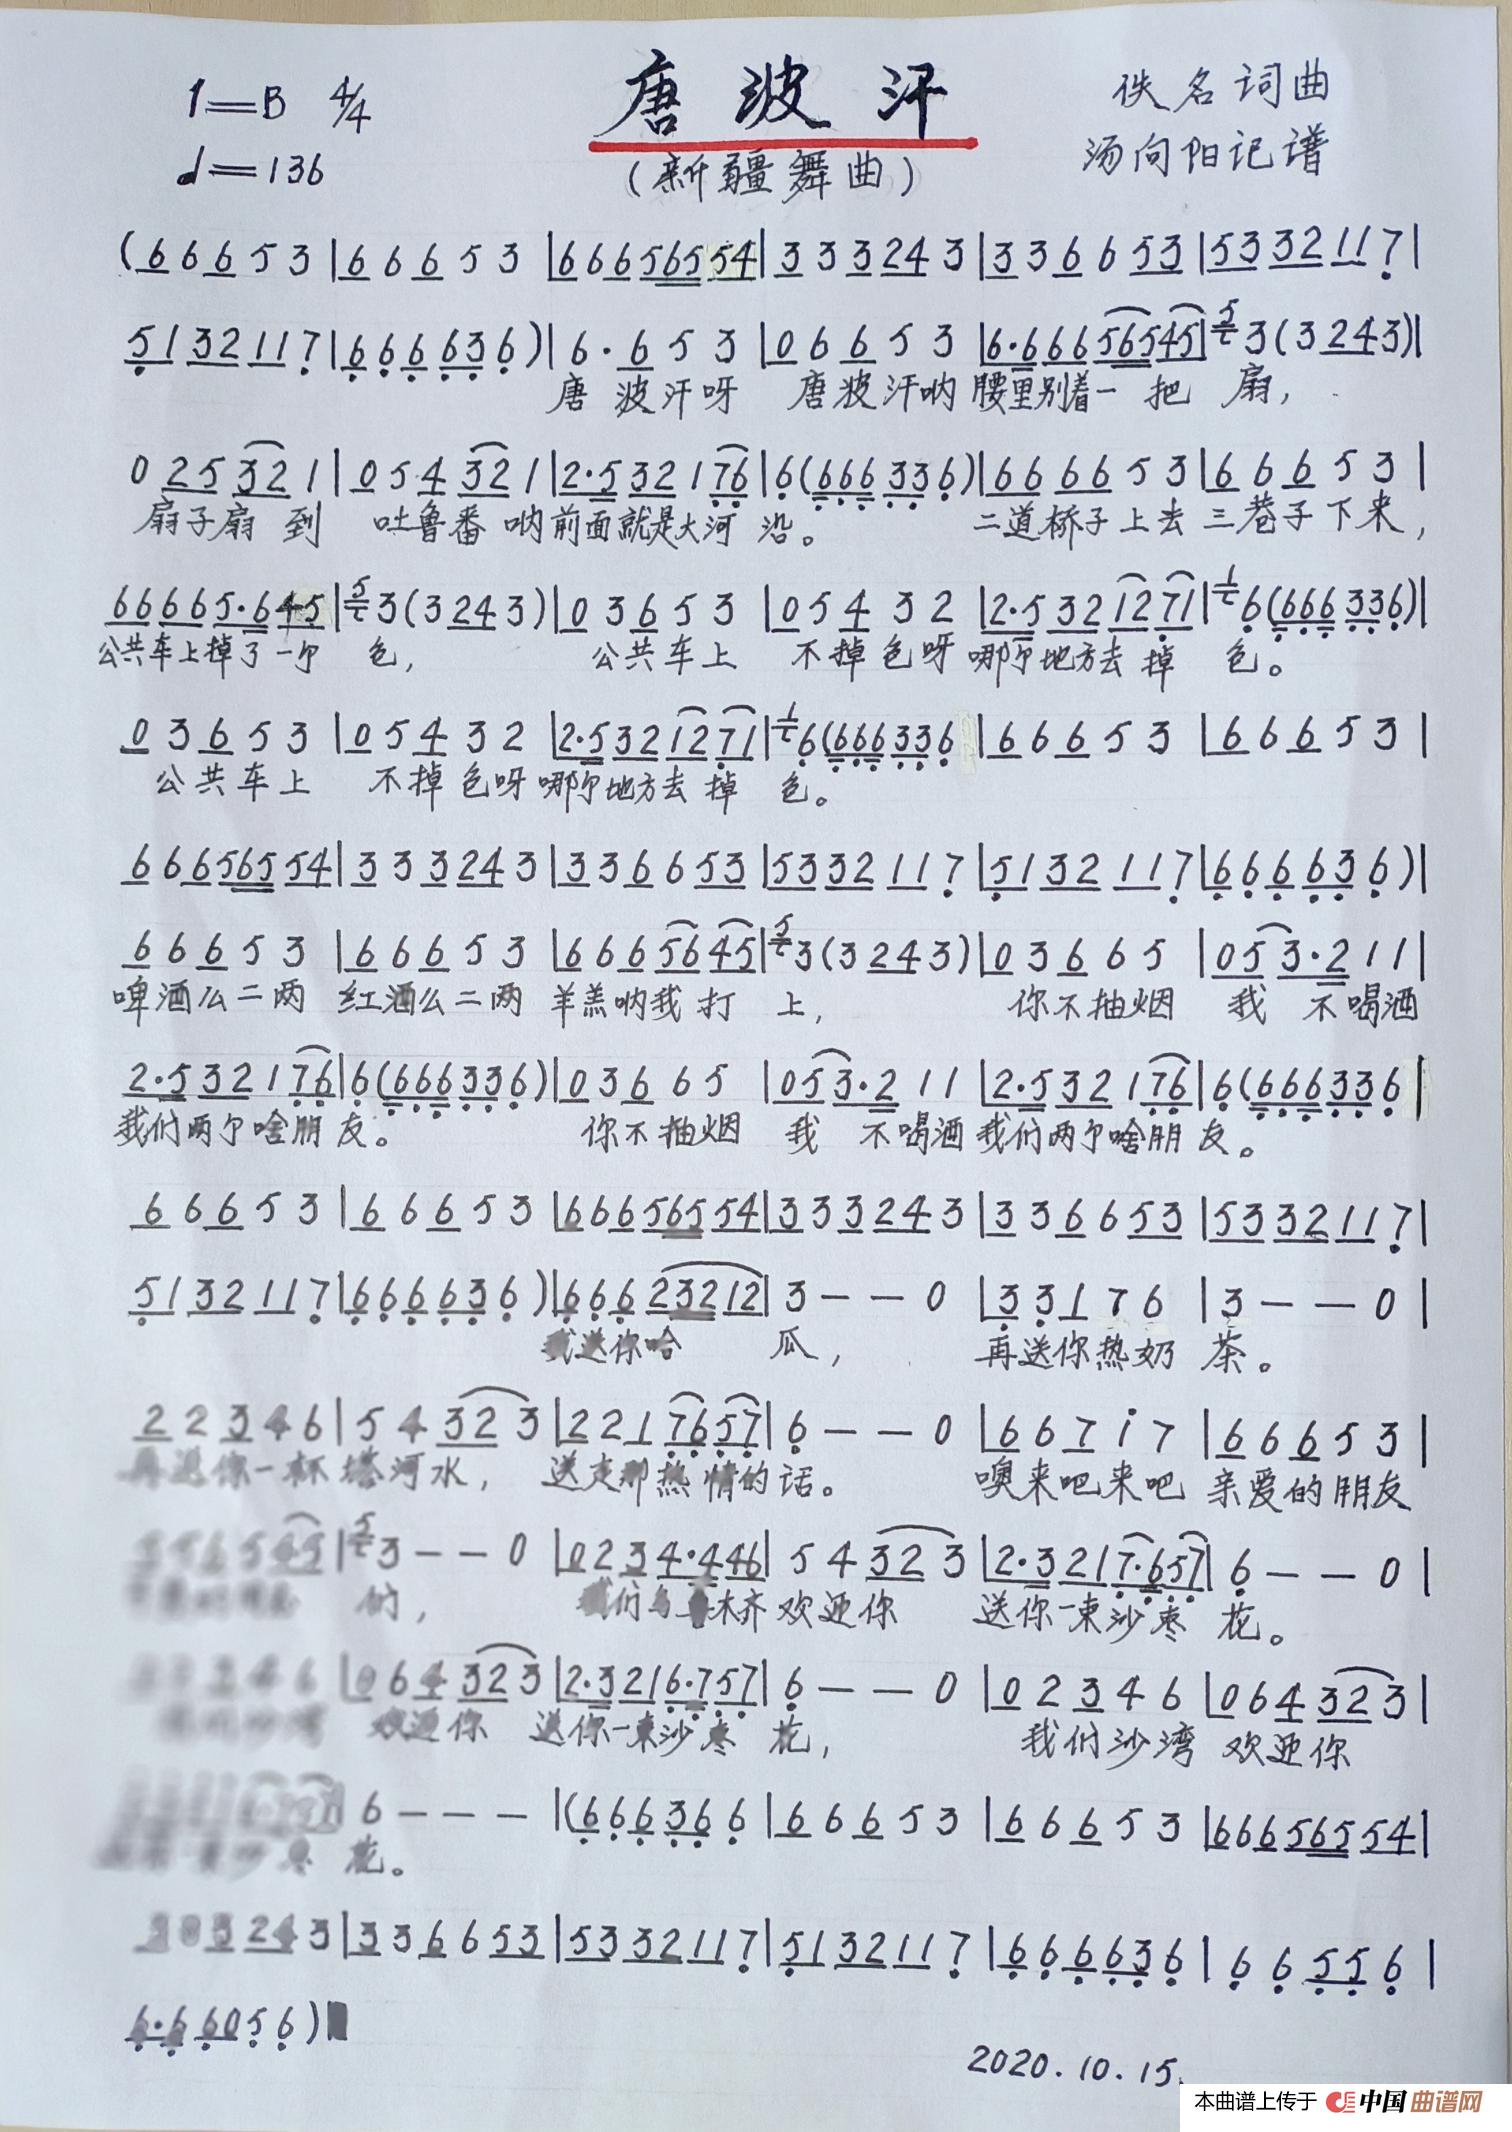 1=B 4/4
唐波汗
佚名词曲
♩=136
(新疆舞曲)
汤向阳记谱
(6 6 6 5 3 | 6 6 6 5 3 | 6 6 6 5 6 5 5 4 | 3 3 3 2 4 3 | 3 3 6 6 5 3 | 5 3 3 2 1 1 7 |
5 1 3 2 1 1 7 | 6 6 6 6 3 6 ) | 6 · 6 5 3 | 0 6 6 5 3 | 6 · 6 6 6 5 6 5 4 5 | 5 3 (3 2 4 3) |
唐 波汗呀 唐波汗呐 腰里别着一 把 扇,
0 2 5 3 2 1 | 0 5 4 3 2 1 | 2 · 5 3 2 1 7 6 | 6 (6 6 6 3 3 6 ) | 6 6 6 6 5 3 | 6 6 6 5 3 |
扇子扇 到 吐鲁番 呐 前面就是大河 沿。 二道桥子上去 三巷子下来,
6 6 6 6 5 · 6 4 5 | 5 3 (3 2 4 3 ) | 0 3 6 5 3 | 0 5 4 3 2 | 2 · 5 3 2 1 2 7 1 | 1 6 (6 6 6 3 3 6 ) |
公共车上掉了一个 色, 公共车上 不掉色呀 哪个地方去 掉 色。
0 3 6 5 3 | 0 5 4 3 2 | 2 · 5 3 2 1 2 7 1 | 1 6 (6 6 6 3 3 6 | 6 6 6 5 3 | 6 6 6 5 3 |
公共车上 不掉色呀 哪个地方去 掉 色。
6 6 6 5 6 5 5 4 | 3 3 3 2 4 3 | 3 3 6 6 5 3 | 5 3 3 2 1 1 7 | 5 1 3 2 1 1 7 | 6 6 6 6 3 6 ) |
6 6 6 5 3 | 6 6 6 5 3 | 6 6 6 5 6 4 5 | 5 3 (3 2 4 3) | 0 3 6 6 5 | 0 5 3 · 2 1 1 |
啤酒么二两 红酒么二两 羊羔呐我 打 上, 你不抽烟 我 不喝酒
2 · 5 3 2 1 7 6 | 6 (6 6 6 3 3 6 ) | 0 3 6 6 5 | 0 5 3 · 2 1 1 | 2 · 5 3 2 1 7 6 | 6 (6 6 6 3 3 6 |
我们两个啥朋 友。 你不抽烟 我 不喝酒 我们两个啥朋 友。
6 6 6 5 3 | 6 6 6 5 3 | 6 6 6 5 6 5 5 4 | 3 3 3 2 4 3 | 3 3 6 6 5 3 | 5 3 3 2 1 1 7 |
5 1 3 2 1 1 7 | 6 6 6 6 3 6 ) | 6 6 6 2 3 2 1 2 | 3 — — 0 | 3 3 1 7 6 | 3 — — 0 |
我送你哈 瓜, 再送你热奶 茶。
2 2 3 4 6 | 5 4 3 2 3 | 2 2 1 7 6 5 7 | 6 — — 0 | 6 6 7 i 7 | 6 6 6 5 3 |
再送你一杯 塔河水, 送走那热情的话。 噢来吧来吧 亲爱的朋友
5 4 5 | 5 3 — — 0 | 0 2 3 4 · 4 4 6 | 5 4 3 2 3 | 2 · 3 2 1 7 · 6 5 7 | 6 — — 0 |
们, 我们乌鲁木齐 欢迎你 送你一束沙枣 花。
4 6 | 0 6 4 3 2 3 | 2 · 3 2 1 6 · 7 5 7 | 6 — — 0 | 0 2 3 4 6 | 0 6 4 3 2 3 |
欢迎你 送你一束沙枣 花, 我们沙湾 欢迎你
6 — — — | (6 6 6 3 6 6 | 6 6 6 5 3 | 6 6 6 5 3 | 6 6 6 5 6 5 5 4 |
枣 花。
3 2 4 3 | 3 3 6 6 5 3 | 5 3 3 2 1 1 7 | 5 1 3 2 1 1 7 | 6 6 6 6 3 6 | 6 6 5 5 6 |
6 · 6 6 0 5 6 )
2020.10.15.
本曲谱上传于 中国曲谱网